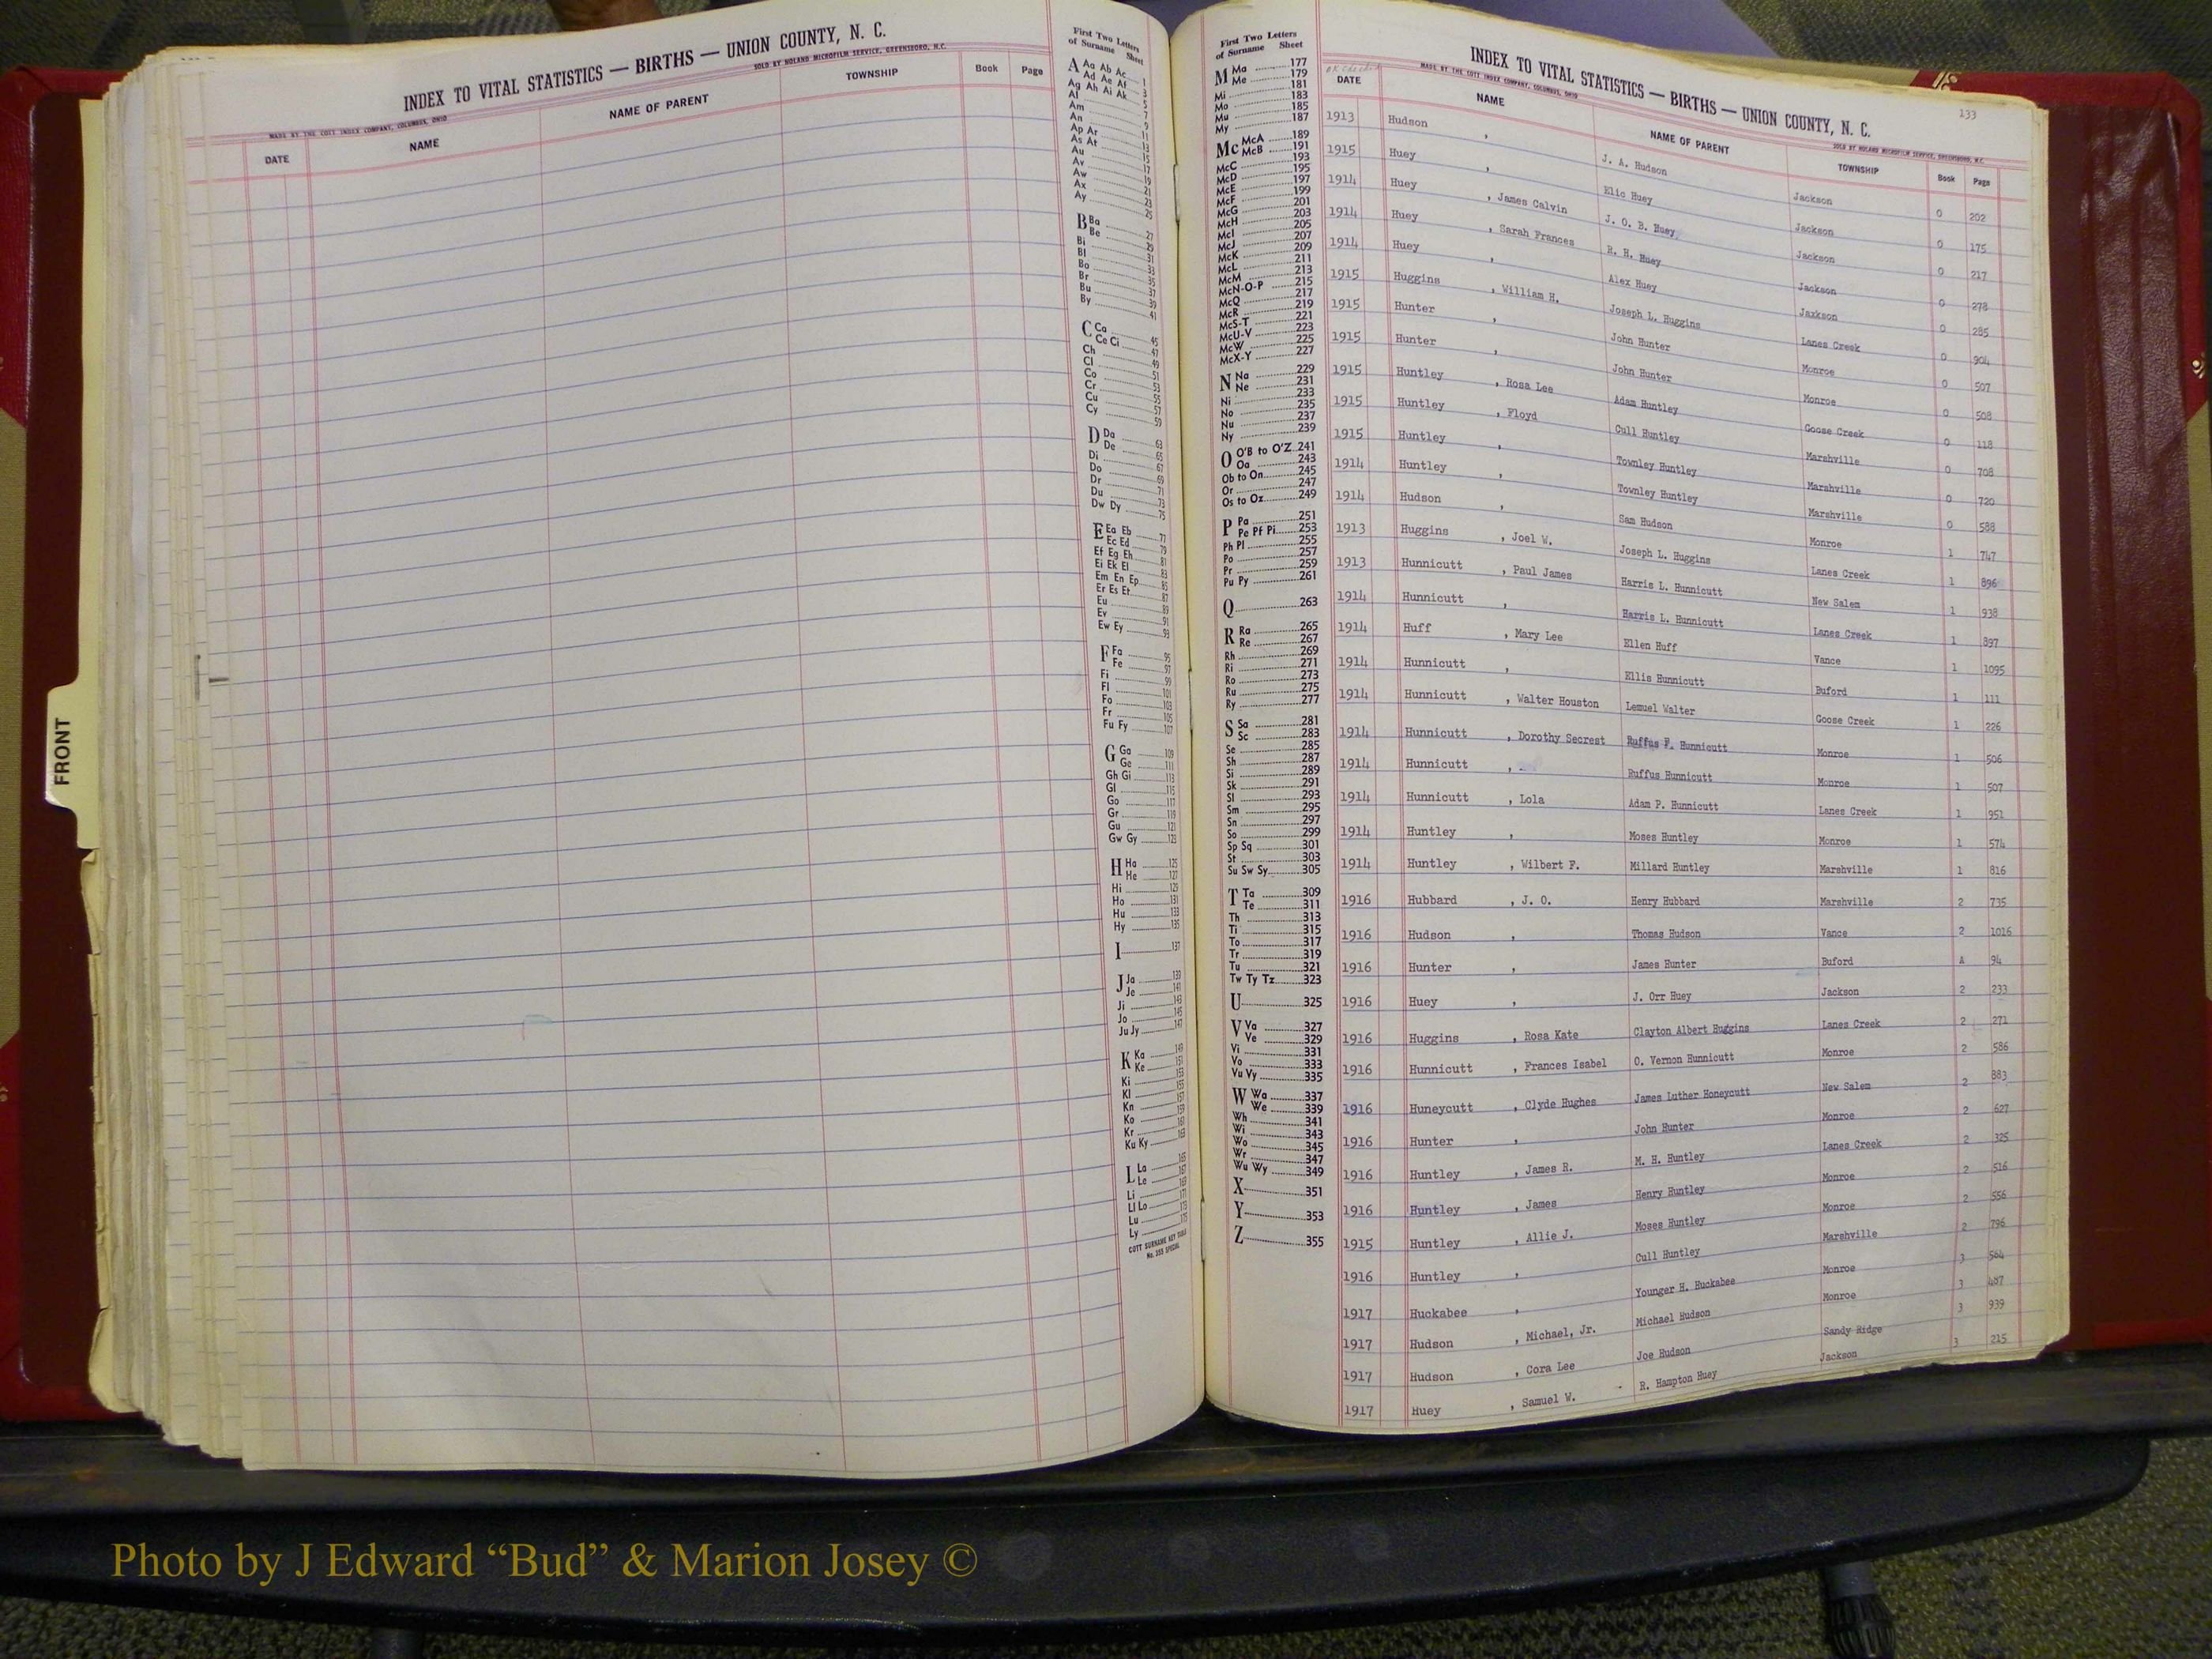 INDEX TO VITAL STATISTICS — BIRTHS — UNION COUNTY, N. C.
MADE BY THE COTT INDEX COMPANY, COLUMBUS, OHIO SOLD BY NOLAND MICROFILM SERVICE, GREENSBORO, N.C.
DATE NAME NAME OF PARENT TOWNSHIP Book Page
FRONT
First Two Letters
of Surname Sheet
A Aa Ab Ac 1
Ad Ae Af 3
Ag Ah Ai Ak 5
Al 7
Am 9
An 11
Ap Ar 13
As At 15
Au 17
Av 19
Aw 21
Ax 23
Ay 25
B Ba 27
Be 29
Bi 31
Bl 33
Bo 35
Br 37
Bu 39
By 41
C Ca 45
Ce Ci 47
Ch 49
Cl 51
Co 53
Cr 55
Cu 57
Cy 59
D Da 63
De 65
Di 67
Do 69
Dr 71
Du 73
Dw Dy 75
E Ea Eb 77
Ec Ed 79
Ef Eg Eh 81
Ei Ek El 83
Em En Ep 85
Er Es Et 87
Eu 89
Ev 91
Ew Ey 93
F Fa 95
Fe 97
Fi 99
Fl 101
Fo 103
Fr 105
Fu Fy 107
G Ga 109
Ge 111
Gh Gi 113
Gl 115
Go 117
Gr 119
Gu 121
Gw Gy 123
H Ha 125
He 127
Hi 129
Ho 131
Hu 133
Hy 135
I 137
J Ja 139
Je 141
Ji 143
Jo 145
Ju Jy 147
K Ka 149
Ke 151
Ki 153
Kl 155
Kn 157
Ko 159
Kr 161
Ku Ky 163
L La 165
Le 167
Li 171
Ll Lo 173
Lu 175
Ly
COTT SURNAME KEY TABLE
No. 355 SPECIAL
First Two Letters
of Surname Sheet
M Ma 177
Me 179
Mi 181
Mo 183
Mu 185
My 187
Mc McA 189
McB 191
McC 193
McD 195
McE 197
McF 199
McG 201
McH 203
McI 205
McJ 207
McK 209
McL 211
McM 213
McN-O-P 215
McQ 217
McR 219
McS-T 221
McU-V 223
McW 225
McX-Y 227
N Na 229
Ne 231
Ni 233
No 235
Nu 237
Ny 239
O O'B to O'Z 241
Oa 243
Ob to On 245
Or 247
Os to Oz 249
P Pa 251
Pe Pf Pi 253
Ph Pl 255
Po 257
Pr 259
Pu Py 261
Q 263
R Ra 265
Re 267
Rh 269
Ri 271
Ro 273
Ru 275
Ry 277
S Sa 281
Sc 283
Se 285
Sh 287
Si 289
Sk 291
Sl 293
Sm 295
Sn 297
So 299
Sp Sq 301
St 303
Su Sw Sy 305
T Ta 309
Te 311
Th 313
Ti 315
To 317
Tr 319
Tu 321
Tw Ty Tz 323
U 325
V Va 327
Ve 329
Vi 331
Vo 333
Vu Vy 335
W Wa 337
We 339
Wh 341
Wi 343
Wo 345
Wr 347
Wu Wy 349
X 351
Y 353
Z 355
133
INDEX TO VITAL STATISTICS — BIRTHS — UNION COUNTY, N. C.
MADE BY THE COTT INDEX COMPANY, COLUMBUS, OHIO SOLD BY NOLAND MICROFILM SERVICE, GREENSBORO, N.C.
DATE NAME NAME OF PARENT TOWNSHIP Book Page
1913 Hudson , J. A. Hudson Jackson 0 202
1915 Huey , Elic Huey Jackson 0 175
1914 Huey , James Calvin J. O. B. Huey Jackson 0 217
1914 Huey , Sarah Frances R. H. Huey Jackson 0 278
1914 Huey , Alex Huey Jaxkson 0 285
1915 Huggins , William H. Joseph L. Huggins Lanes Creek 0 904
1915 Hunter , John Hunter Monroe 0 507
1915 Hunter , John Hunter Monroe 0 508
1915 Huntley , Rosa Lee Adam Huntley Goose Creek 0 118
1915 Huntley , Floyd Cull Huntley Marshville 0 708
1915 Huntley , Townley Huntley Marshville 0 720
1914 Huntley , Townley Huntley Marshville 0 588
1914 Hudson , Sam Hudson Monroe 1 747
1913 Huggins , Joel W. Joseph L. Huggins Lanes Creek 1 896
1913 Hunnicutt , Paul James Harris L. Hunnicutt New Salem 1 938
1914 Hunnicutt , Harris L. Hunnicutt Lanes Creek 1 897
1914 Huff , Mary Lee Ellen Huff Vance 1 1095
1914 Hunnicutt , Ellis Hunnicutt Buford 1 111
1914 Hunnicutt , Walter Houston Lemuel Walter Goose Creek 1 226
1914 Hunnicutt , Dorothy Secrest Ruffus F. Hunnicutt Monroe 1 506
1914 Hunnicutt , Ruffus Hunnicutt Monroe 1 507
1914 Hunnicutt , Lola Adam P. Hunnicutt Lanes Creek 1 951
1914 Huntley , Moses Huntley Monroe 1 574
1914 Huntley , Wilbert F. Millard Huntley Marshville 1 816
1916 Hubbard , J. O. Henry Hubbard Marshville 2 735
1916 Hudson , Thomas Hudson Vance 2 1016
1916 Hunter , James Hunter Buford A 94
1916 Huey , J. Orr Huey Jackson 2 233
1916 Huggins , Rosa Kate Clayton Albert Huggins Lanes Creek 2 271
1916 Hunnicutt , Frances Isabel O. Vernon Hunnicutt Monroe 2 586
1916 Huneycutt , Clyde Hughes James Luther Honeycutt New Salem 2 883
1916 Hunter , John Hunter Monroe 2 627
1916 Huntley , James R. M. H. Huntley Lanes Creek 2 325
1916 Huntley , James Henry Huntley Monroe 2 516
1915 Huntley , Allie J. Moses Huntley Monroe 2 556
1916 Huntley , Cull Huntley Marshville 2 796
1917 Huckabee , Younger H. Huckabee Monroe 3 564
1917 Hudson , Michael, Jr. Michael Hudson Monroe 3 487
1917 Hudson , Cora Lee Joe Hudson Sandy Ridge 3 939
1917 Huey , Samuel W. R. Hampton Huey Jackson 3 215
Photo by J Edward “Bud” & Marion Josey ©